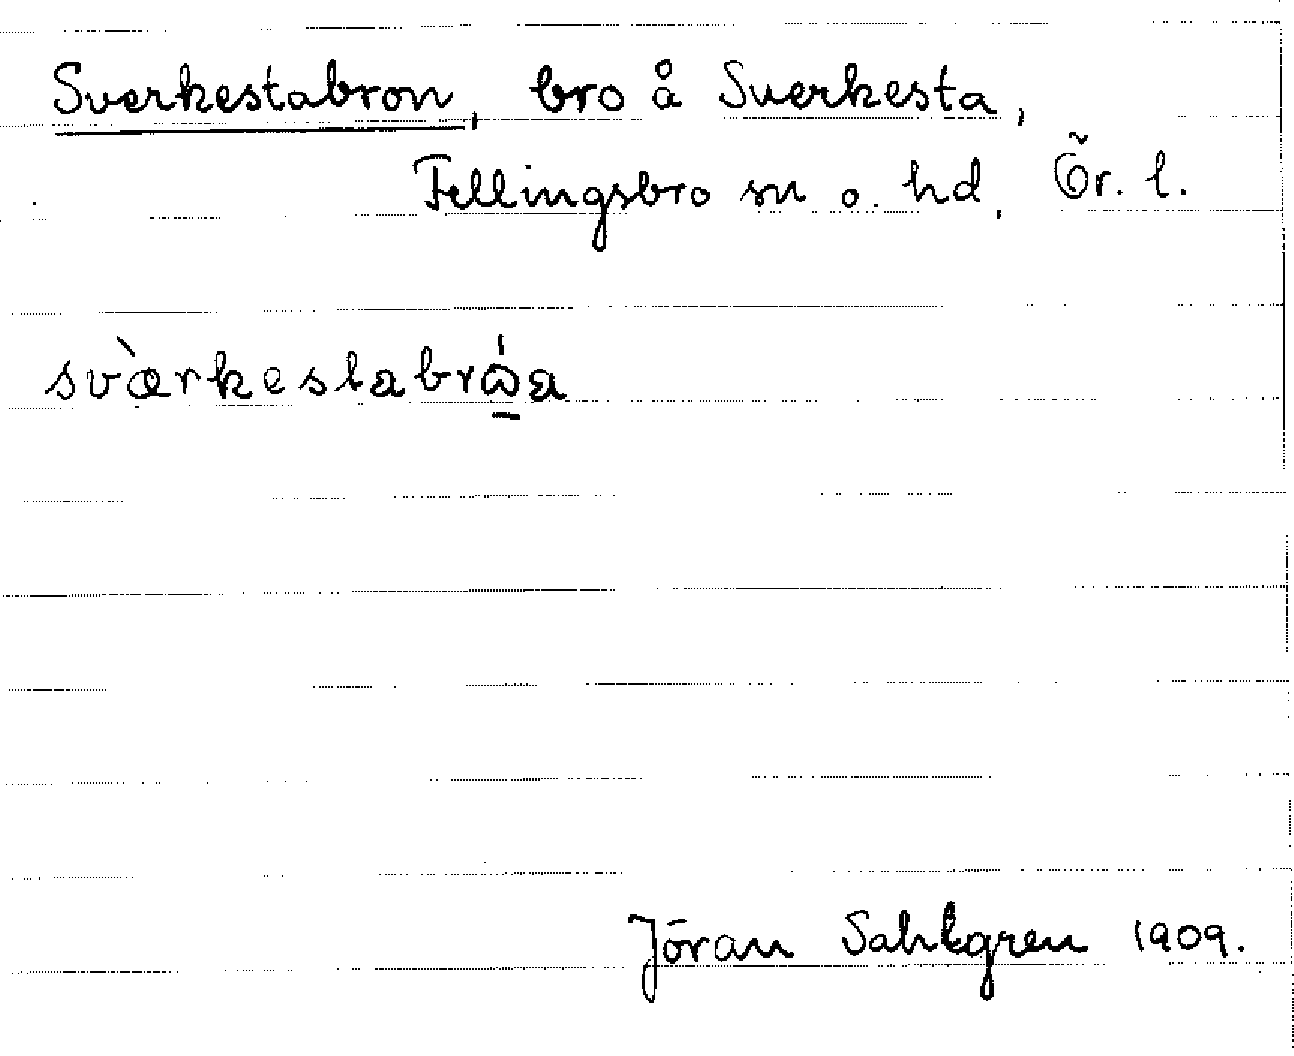 Sverkestabron, bro å Sverkesta,
Fellingsbro sn o. hd, Ör. l.
svæ̀rkestabrɷ́a
Jöran Sahlgren 1909.